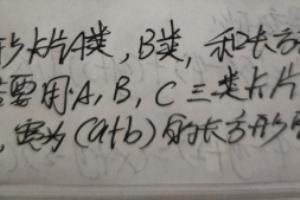 形卡片A类,B类,和长方
要用A,B,C三类卡片
,宽为(a+b)的长方形